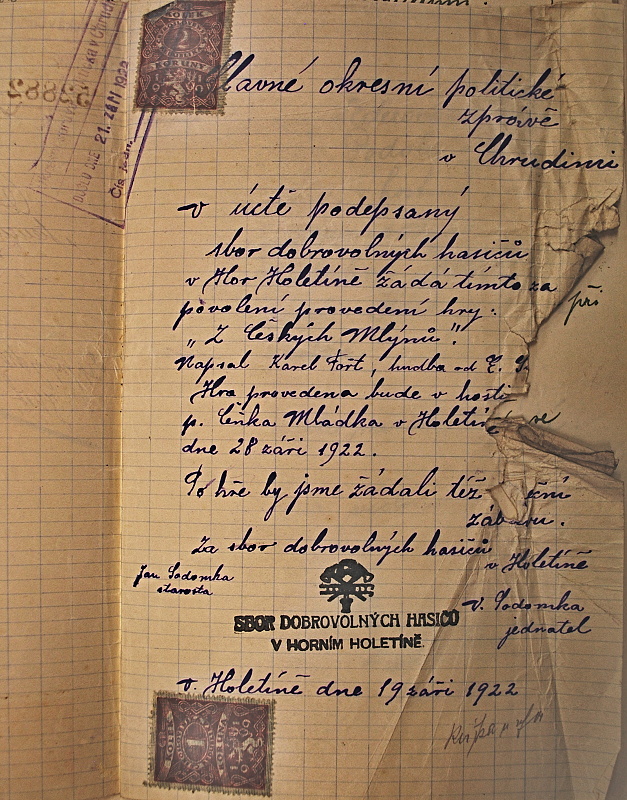 52882
DOŠLO DNE 21. ZÁŘÍ 1922
Čís. jedn.
KOLEK
2
KORUNY
Slavné okresní politické
zprávě
v Chrudimi
V úctě podepsaný
sbor dobrovolných hasičů
v Hor Holetíně žádá tímto za
při
povolení provedení hry:
„Z Českých Mlýnů".
Napsal Karel Fořt, hudba od
Hra provedena bude v hosti
p. Čeňka Mládka v Holetíně se
dne 28 září 1922.
Po hře by jsme žádali též ční
zábavu.
Za sbor dobrovolných hasičů
v Holetíně
Jan Sodomka
starosta
V. Sodomka
jednatel
SBOR DOBROVOLNÝCH HASIČŮ
V HORNÍM HOLETÍNĚ.
v. Holetíně dne 19 září 1922
KOLEK
1
KORUNA